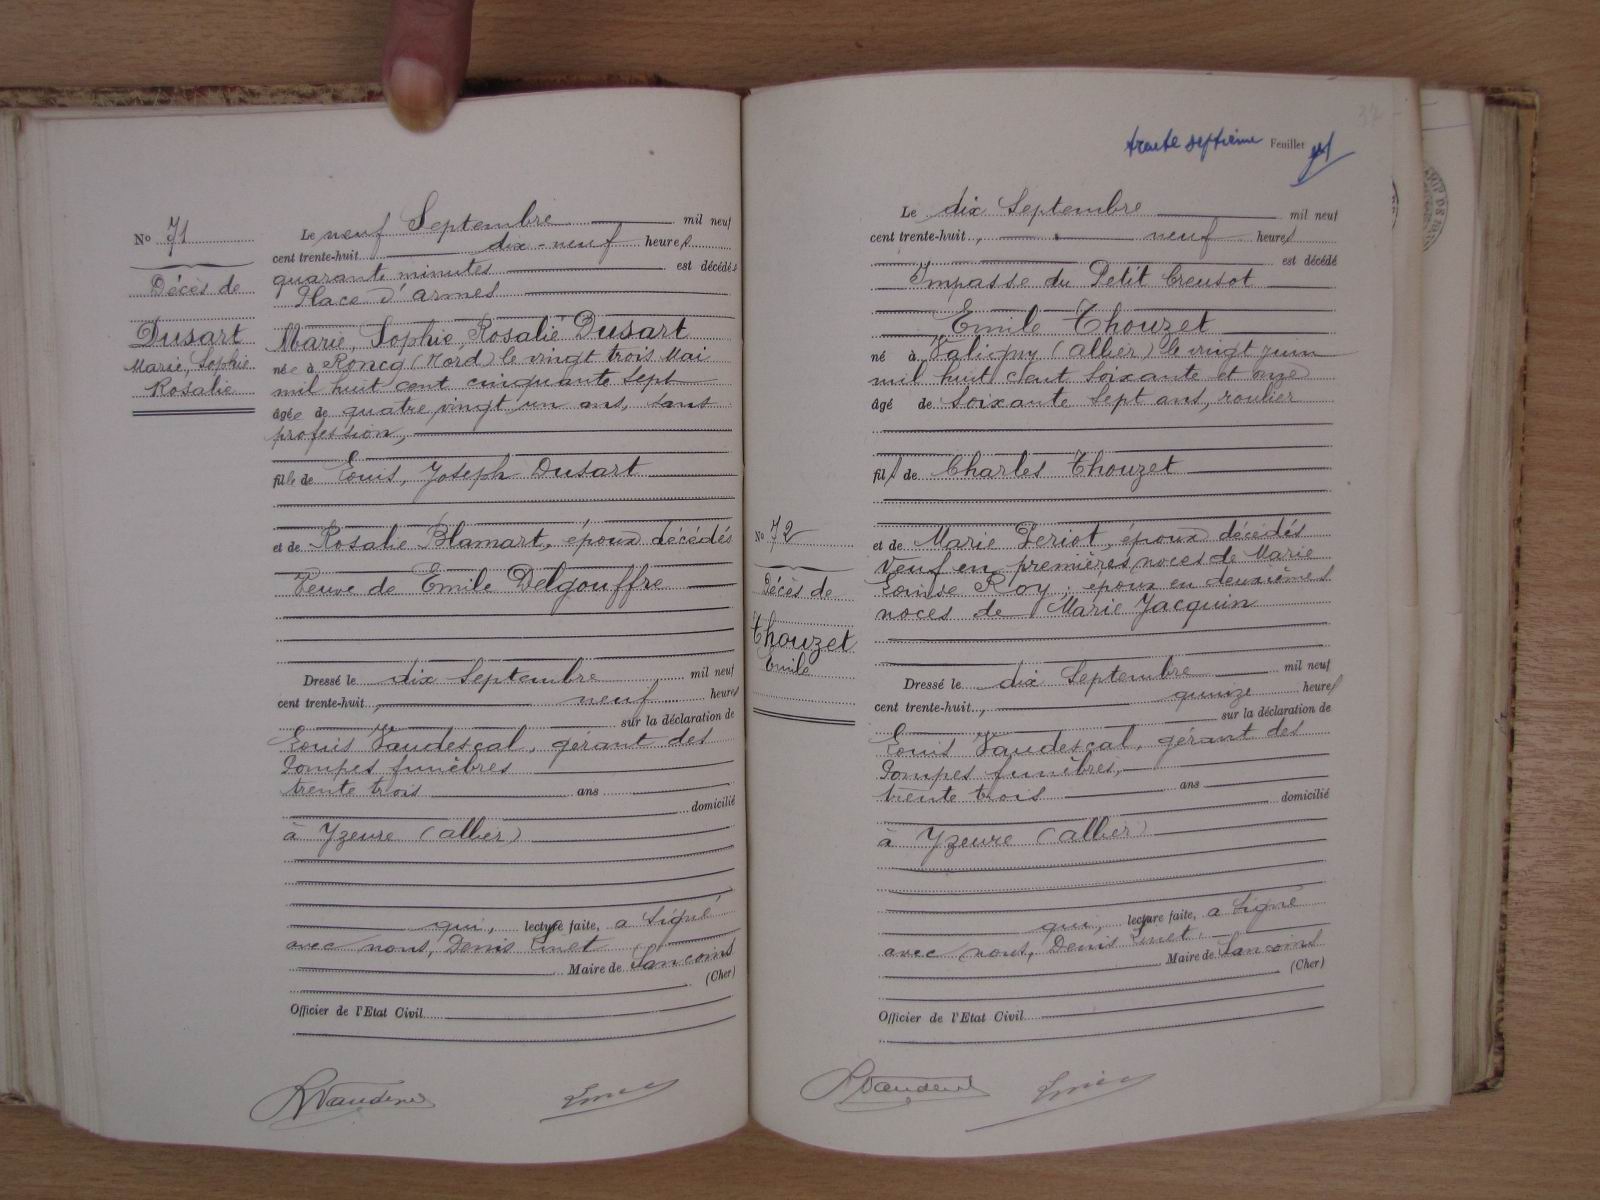 No 71
Décès de
Dusart
Marie, Sophie
Rosalie
Le neuf Septembre mil neuf
cent trente-huit, dix-neuf heures
quarante minutes est décédée
Place d'armes
Marie, Sophie, Rosalie Dusart
née à Roncq (Nord) le vingt trois Mai
mil huit cent cinquante sept
âgée de quatre vingt un ans, sans
profession,
fille de Louis, Joseph Dusart
et de Rosalie Blamart, époux décédés
Veuve de Emile Delgouffre
Dressé le dix Septembre mil neuf
cent trente-huit, neuf heures
sur la déclaration de
Louis Vaudescal, gérant des
Pompes funèbres
trente trois ans
domicilié
à Yzeure (allier)
qui, lecture faite, a signé
avec nous, Denis
Maire de Sancoins
(Cher)
Officier de l'Etat Civil
trente septième Feuillet
37
Le dix Septembre mil neuf
cent trente-huit, neuf heures
est décédé
Impasse du Petit Creusot
Emile Thouzet
né à Valigny (allier) le vingt juin
mil huit cent soixante et onze
âgé de soixante sept ans, roulier
fils de Charles Thouzet
No 72
Décès de
Thouzet
Emile
et de Marie Feriot, époux décédés
Veuf en premières noces de Marie
Louise Roy, époux en deuxièmes
noces de Marie Jacquin
Dressé le dix Septembre mil neuf
cent trente-huit, quinze heures
sur la déclaration de
Louis Vaudescal, gérant des
Pompes funèbres,
trente trois ans
domicilié
à Yzeure (allier)
qui, lecture faite, a signé
avec nous, Denis
Maire de Sancoins
(Cher)
Officier de l'Etat Civil